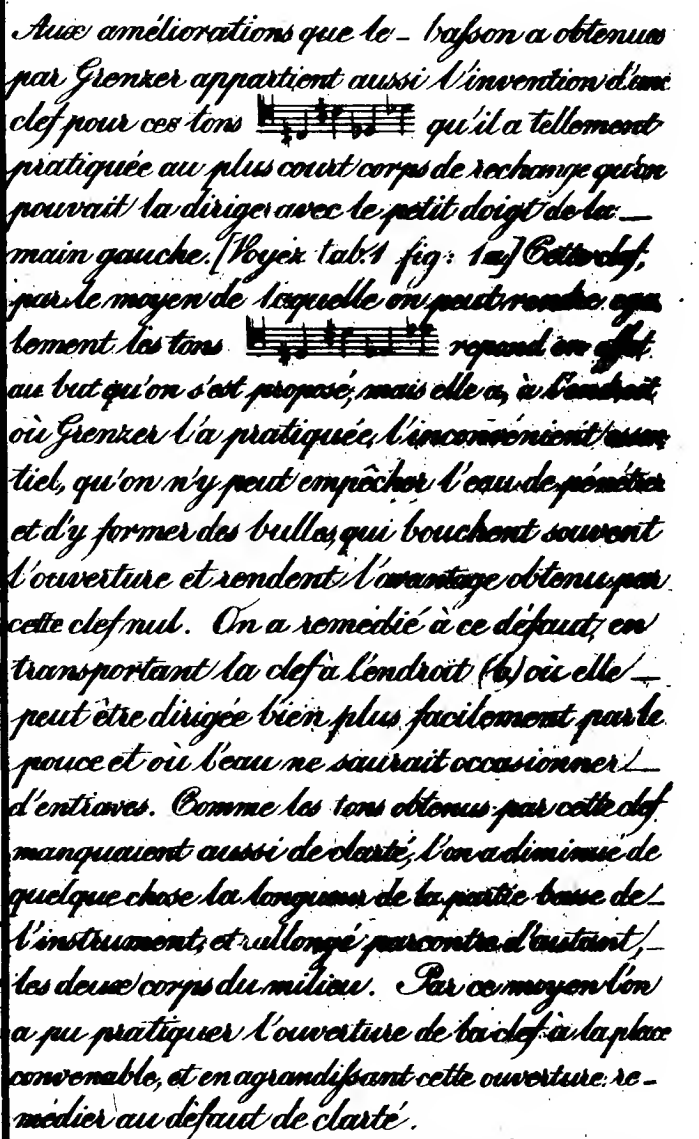 Aux améliorations que le_ basson a obtenues
par Grenzer appartient aussi l'invention d'une
clef pour ces tons qu'il a tellement
pratiquée au plus court corps de rechange qu'on
pouvait la diriger avec le petit doigt de la_
main gauche. [Voyez tab.1 fig: 1a] Cette clef,
par le moyen de laquelle on peut rendre ega
lement les tons repond en effet
au but qu'on s'est proposé, mais elle a, à l'endroit
où Grenzer l'a pratiquée, l'inconvénient essen
tiel, qu'on n'y peut empêcher l'eau de pénétrer
et d'y former des bulles, qui bouchent souvent
l'ouverture et rendent l'avantage obtenu par
cette clef nul. On a remedié à ce défaut, en
transportant la clef à l'endroit (b) où elle_
peut être dirigée bien plus facilement par le
pouce et où l'eau ne saurait occasionner_
d'entraves. Comme les tons obtenus par cette clef
manquaient aussi de clarté, l'on a diminué de
quelque chose la longueur de la partie basse de_
l'instrument, et rallongé parcontre d'autant,_
les deux corps du milieu. Par ce moyen l'on
a pu pratiquer l'ouverture de la clef à la place
convenable, et en agrandissant cette ouverture re_
médier au défaut de clarté.